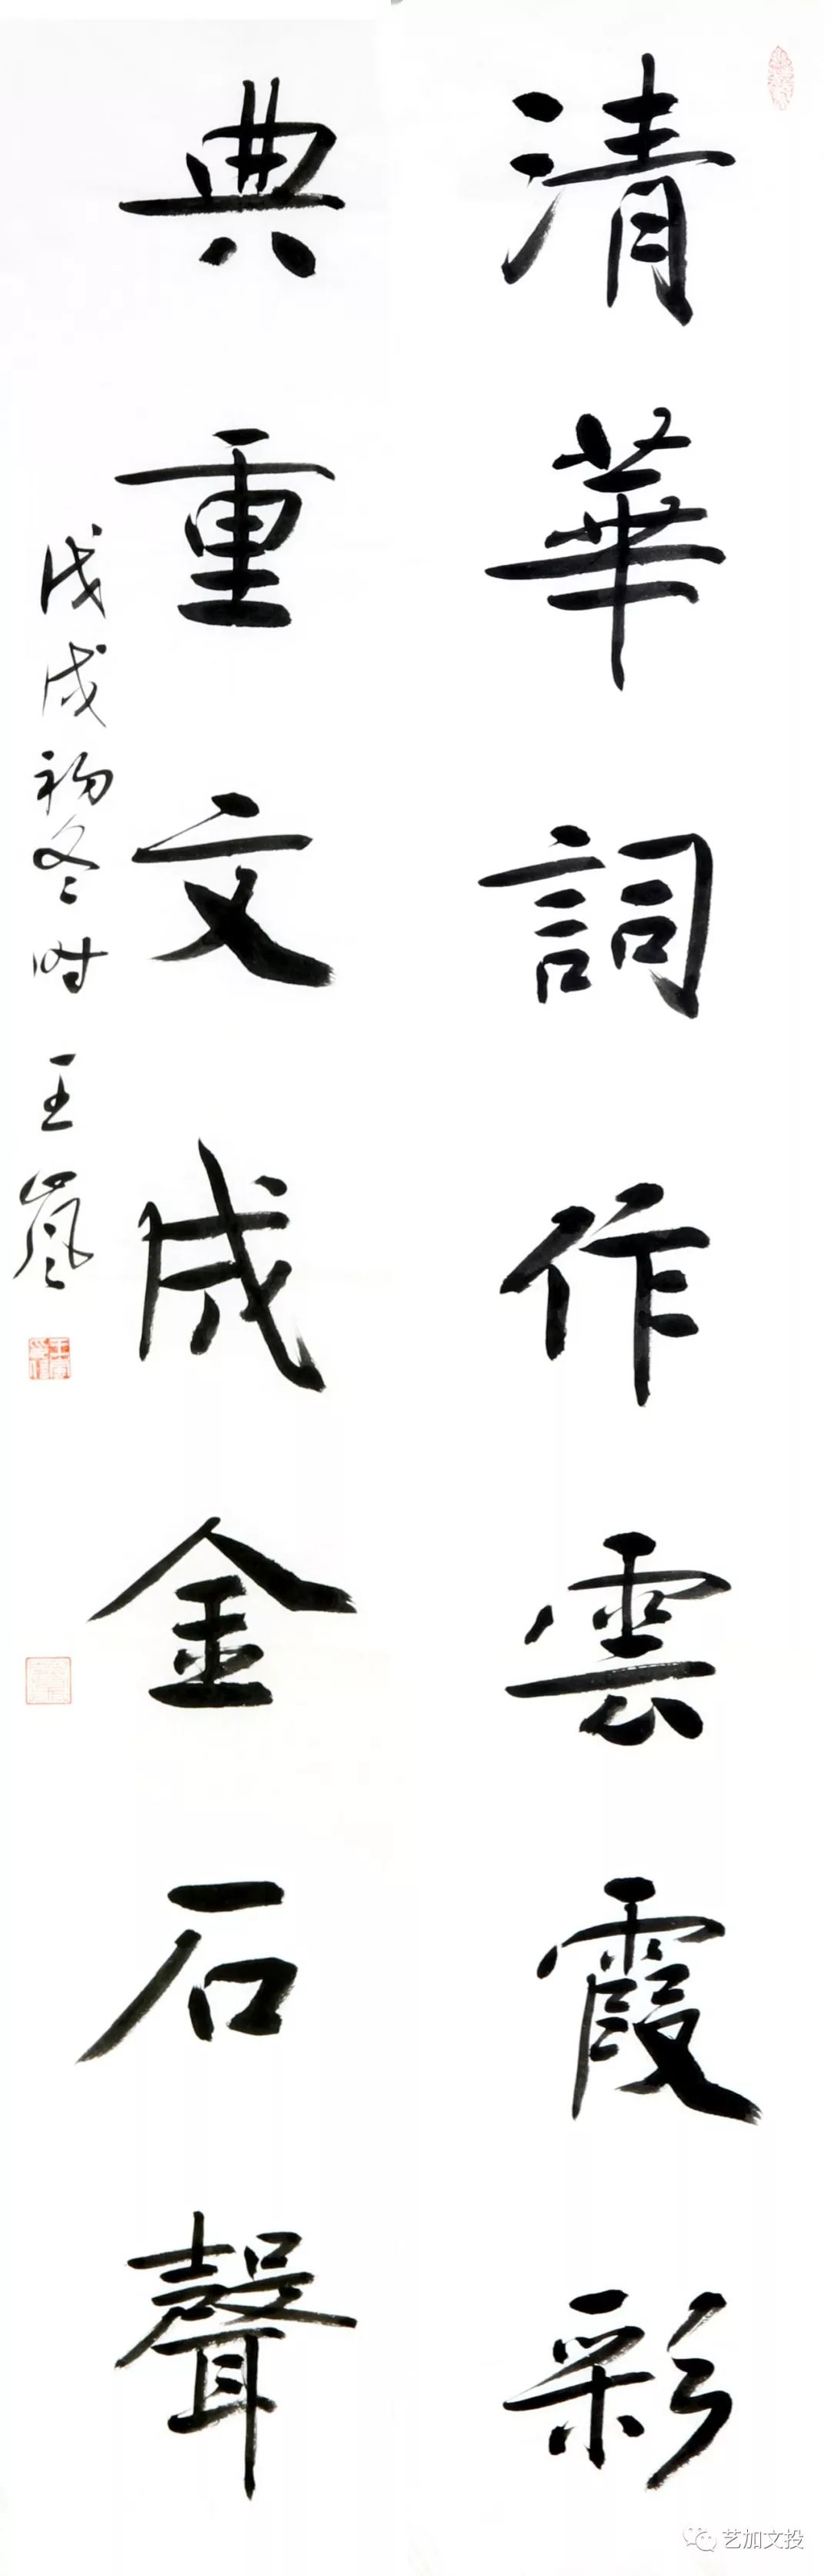 清華詞作雲霞彩
典重文成金石聲
戊戌初冬時 王嵐
艺加文投